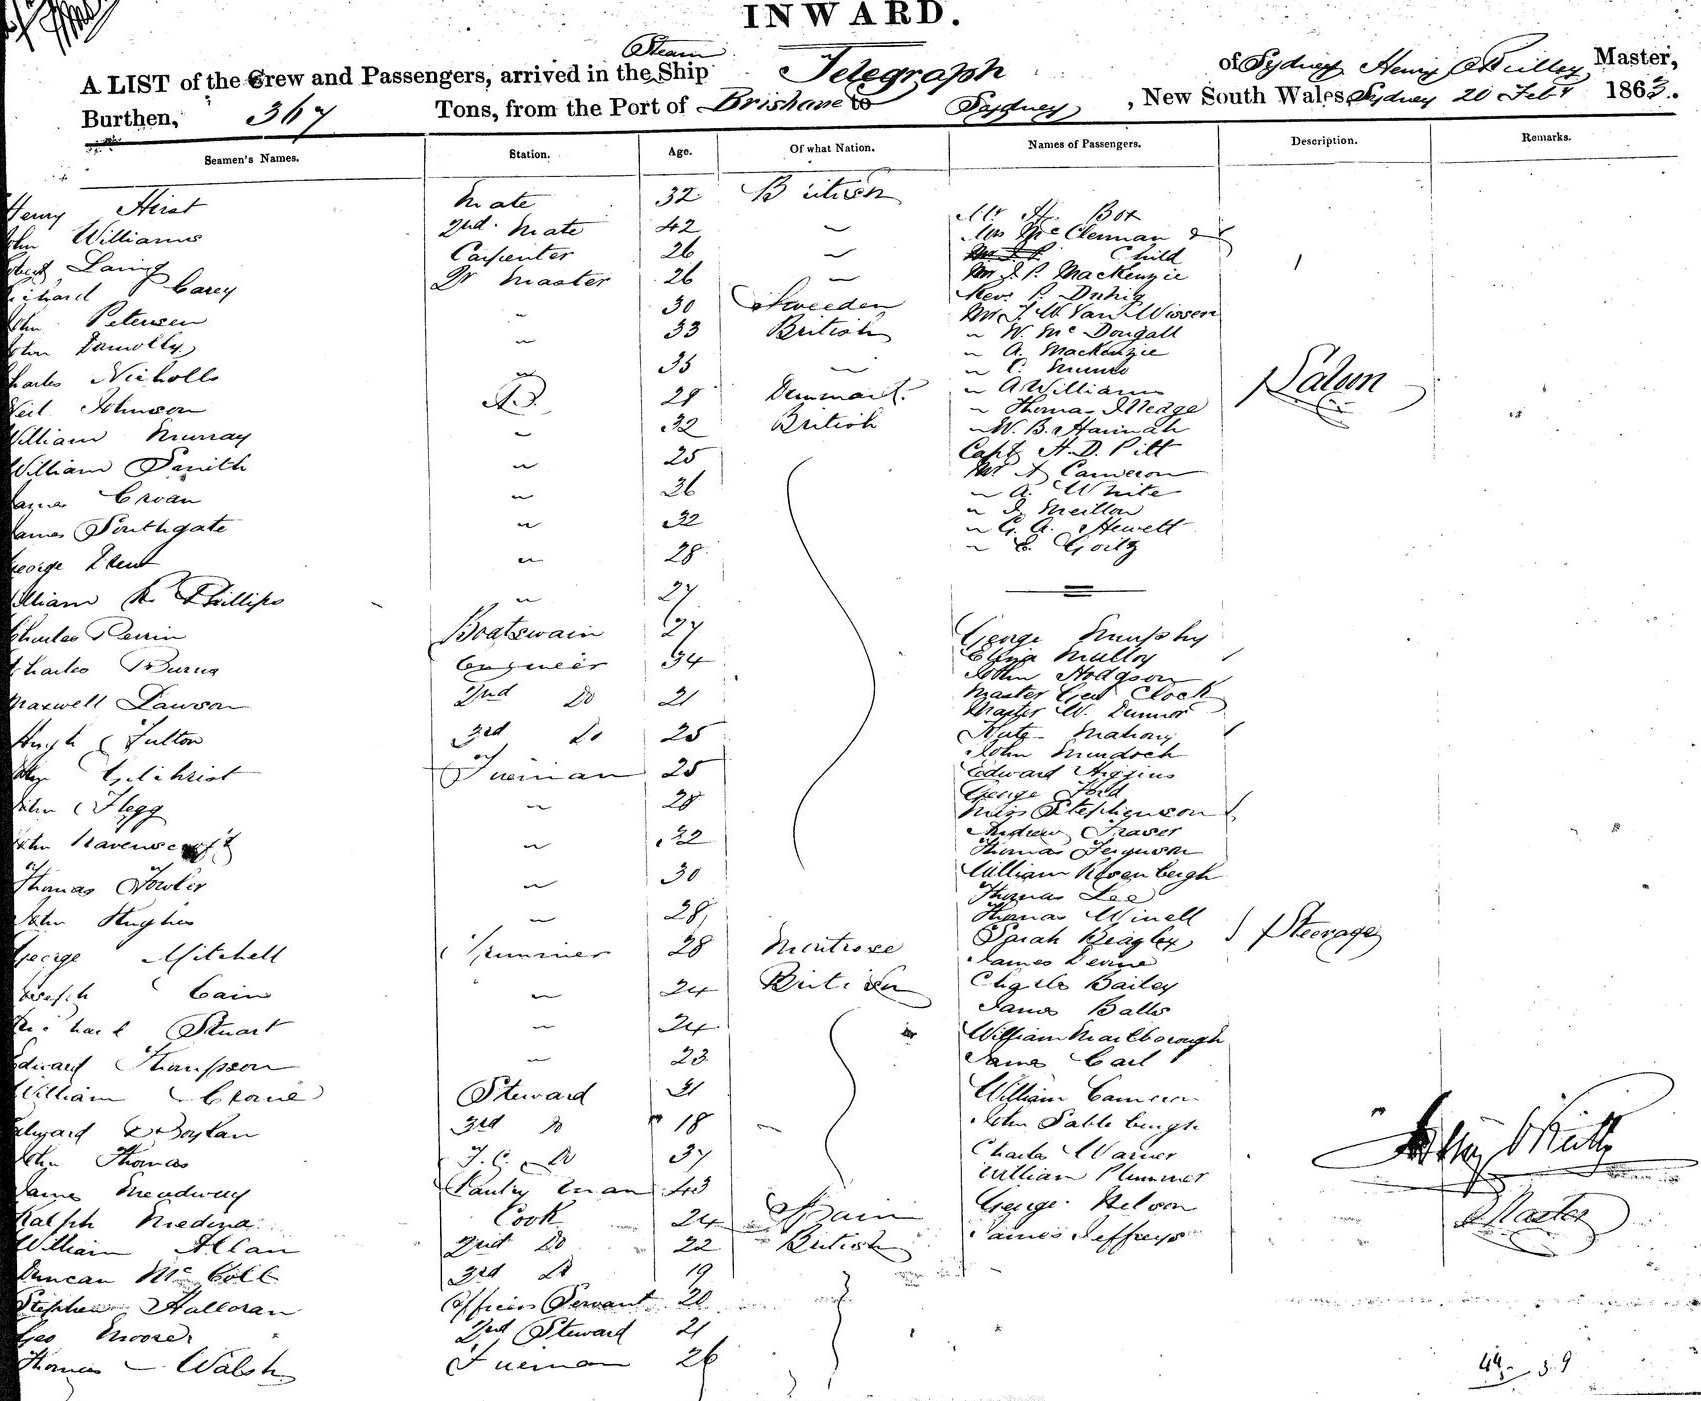 INWARD.
Steam
A LIST of the Crew and Passengers, arrived in the Ship Telegraph of Sydney Henry O'Reilley Master,
Burthen, 367 Tons, from the Port of Brisbane to Sydney, New South Wales Sydney 20 Feby 1863.
Seamen's Names. Station. Age. Of what Nation. Names of Passengers. Description. Remarks.
Henry Hirst Mate 32 British
John Williams 2nd Mate 42 "
Robert Laing Carpenter 26 "
Richard Carey Qr Master 26 "
John Petersen " 30 Sweeden
John Donnolly " 33 British
Charles Nicholls " 35 "
Neil Johnson A.B. 29 Denmark.
William Murray " 32 British
William Smith " 25
James Croan " 36
James Southgate " 32
George " 28
William R. Phillips " 27
Charles Perrin Boatswain 27
Charles Burns Engineer 34
Maxwell Lawson 2nd Do 21
Hugh Fulton 3rd Do 25
Gilchrist Fireman 25
John Flegg " 28
John Ravenscroft " 32
Thomas Fowler " 30
John Hughes " 28
George Mitchell Trimmer 28 Montrose
Joseph Cain " 24 British
Michael Stuart " 24
Edward Thompson " 23
William Crane Steward 31
Edward Boylan 3rd Do 18
John Thomas F.C. Do 37
James Meadway Pantry man 43
Ralph Medina Cook 24 Spain
William Allan 2nd Do 22 British
Duncan McColl 3rd Do 19
Stephen Halloran Officers Servant 20
Geo Moore 2nd Steward 21
Thomas Walsh Fireman 26
Mr H. Box
Mrs McClennan &
Child
Mr J. P. MacKenzie
Rev. P. Duhig
Mr J W Van Wissen
" W. McDougall
" A. MacKenzie
" C. Munro
" A Williams
" Thomas Illedge
" W. B. Hannah
Capt H. D. Pitt
Mr A Cameron
" A. White
" J. Meillon
" G. A. Hewett
" E. Goitz
Saloon
George Murphy
Eliza Mulloy
John Hodgson
Master Geo Clock
Master W. Dunnor
Kate Mahony
John Murdoch
Edward Higgins
George Ford
Miss Stephenson
Andrew Fraser
Thomas Ferguson
William Rosenbergh
Thomas Lee
Thomas Winell
Sarah Beagley
James Devine
Charles Bailey
James Balls
William Marlborough
James Carl
William Cameron
John Sableburgh
Charles Warner
William Plummer
George Nelson
James Jeffreys
Steerage
Henry O'Reilly
Master
44 39